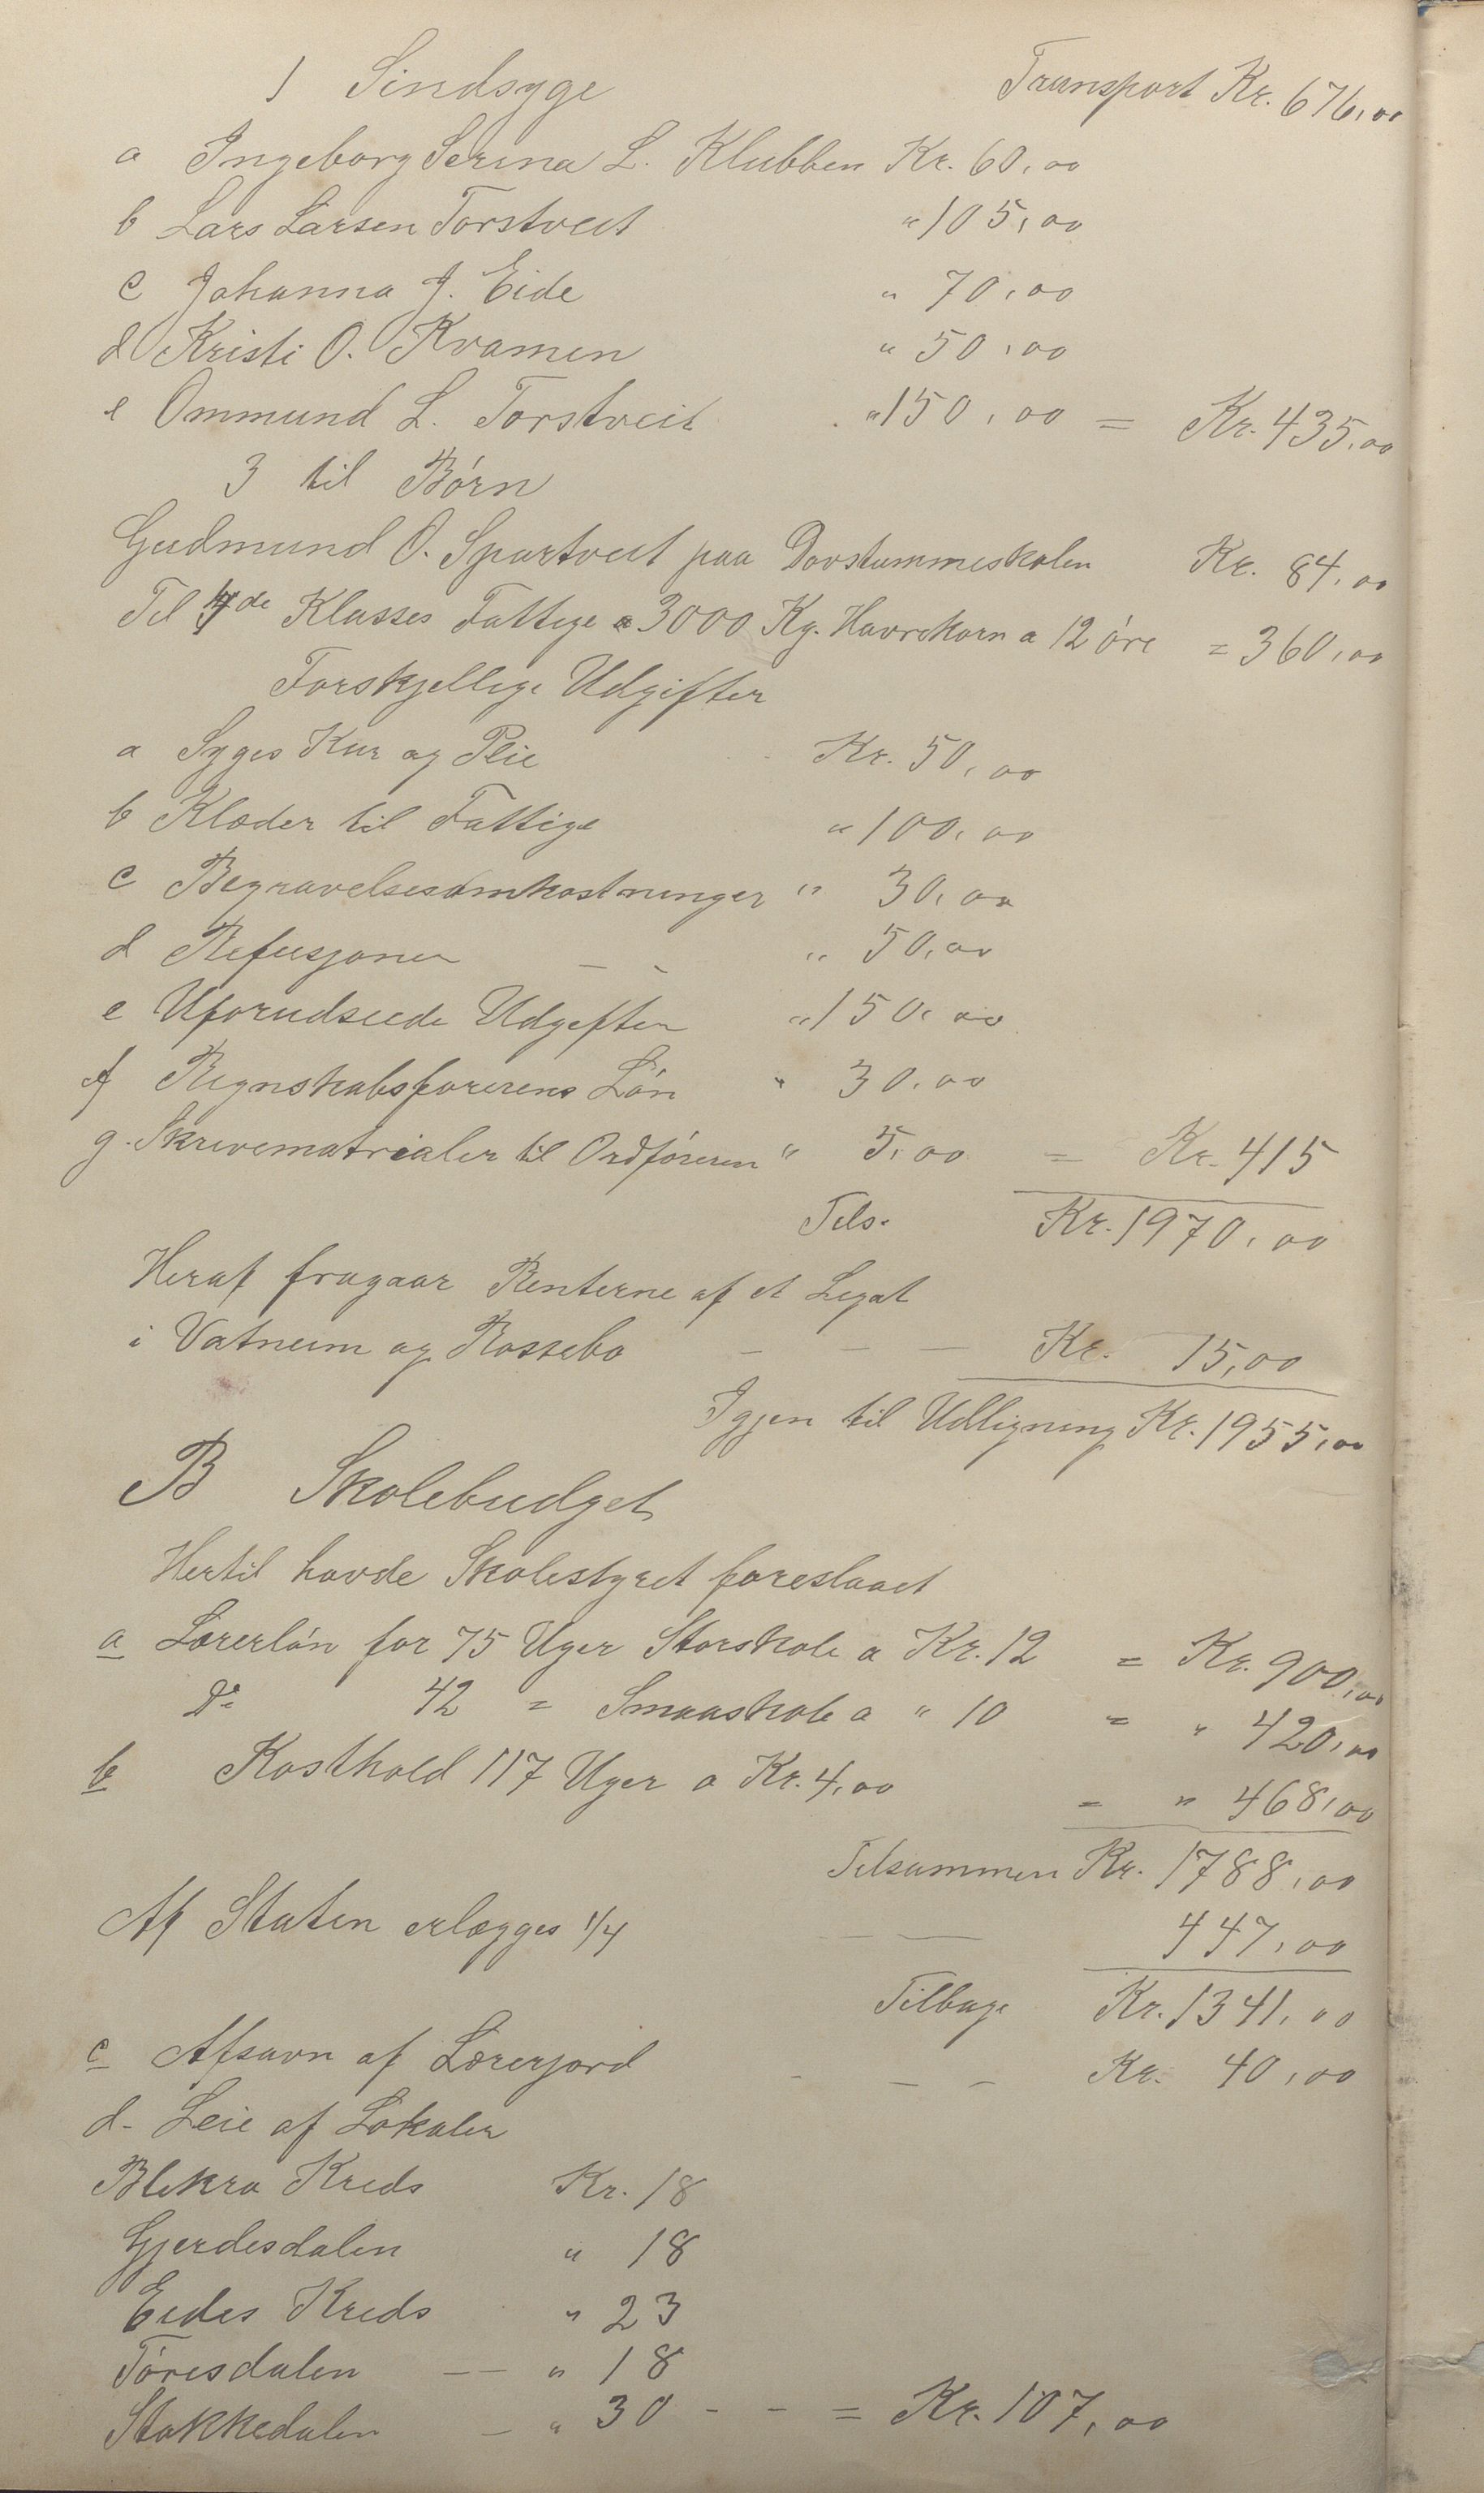 1 Sindsyge Transport Kr. 676,00
a Ingeborg Serina L. Klubben Kr. 60,00
b Lars Larsen Torstveit " 105,00
c Johanna J. Eide " 70,00
d Kristi O. Kvamen " 50,00
e Ommund L. Torstveit " 150,00 = Kr. 435,00
3 til Børn
Gudmund O. Spartveit paa Døvstummeskolen Kr. 84,00
Til de Klasses Fattige 3000 Kg. Havrekorn a 12 øre = 360,00
Forskjellige Udgifter
a Syges Kur og Pleie Kr. 50,00
b Klæder til Fattige " 100,00
c Begravelsesomkostninger " 30,00
d Refusjoner — - " 50,00
e Uforudseede Udgifter " 150,00
f Regnskabsførerens Løn " 30,00
g. Skrivematrialer til Ordføreren " 5,00 = Kr. 415
Tils. Kr. 1970,00
Heraf fragaar Renterne af et Legat
i Vatneim og Rossebø — — — Kr. 15,00
Igjen til Udligning Kr. 1955,00
B Skolebudget
Hertil havde Skolestyret foreslaaet
a Lærerløn for 75 Uger Storskole a Kr. 12 = Kr. 900,00
Do 42 = Smaaskole a " 10 = " 420,00
b Kosthold 117 Uger a Kr. 4,00 = " 468,00
Tilsammen Kr. 1788,00
Af Staten erlægges 1/4 — — 447,00
Tilbage Kr. 1341,00
c Afsavn af Lærerjord - — - Kr. 40,00
d- Leie af Lokaler
Blikra Kreds Kr. 18
Gjerdesdalen " 18
Eides Kreds " 23
Tøresdalen — — " 18
Stakkedalen — " 30 - - = Kr. 107,00